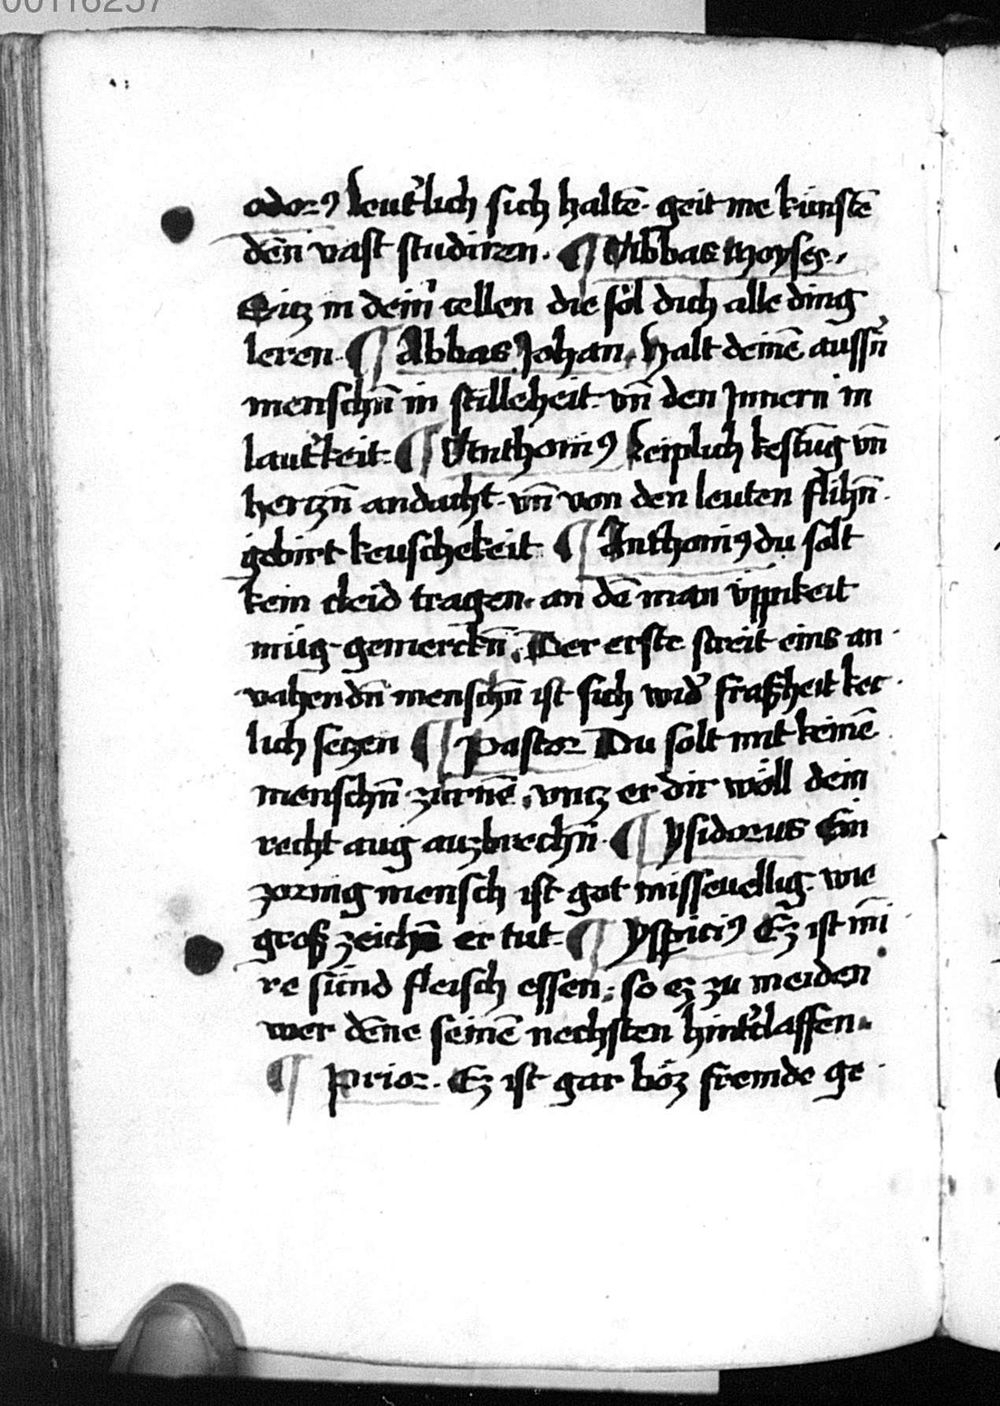 odorꝰ leut'lich sich haltē. geit me kunstē
den vast studiren. ¶ Abbas Moyses.
Sitz in dein' cellen die sol dich alle ding
leren. ¶ Abbas Johan. halt deinē aussn̄
menschn̄ in stilleheit. vn̄ den Jnnern in
laut'keit. ¶ Anthoniꝰ keiplich kestūg vn̄
hertzn̄ andacht. vn̄ von den leuten flihn̄.
gebirt keuschekeit ¶ Anthoniꝰ du solt
kein cleid tragen. an dē man vppikeit
mug gemerckn̄. Der erste streit eins an
vahendn̄ menschn̄ ist sich wid' fraßheit kec
lich setzen ¶ Pastor Du solt mit keinē
menschn̄ zurnē. vntz er dir wöll dein
recht aug auzbrechn̄. ¶ Ysidorus Ein
zornig mensch ist got misseuellig. wie
groß zeichē er tut. ¶ Ysspiciꝰ Ez ist mī
re sund fleisch essen. so ez zu meiden
wer dēne seinē nechsten hint'claffen.
¶ Prior. Ez ist gar böz fremde ge